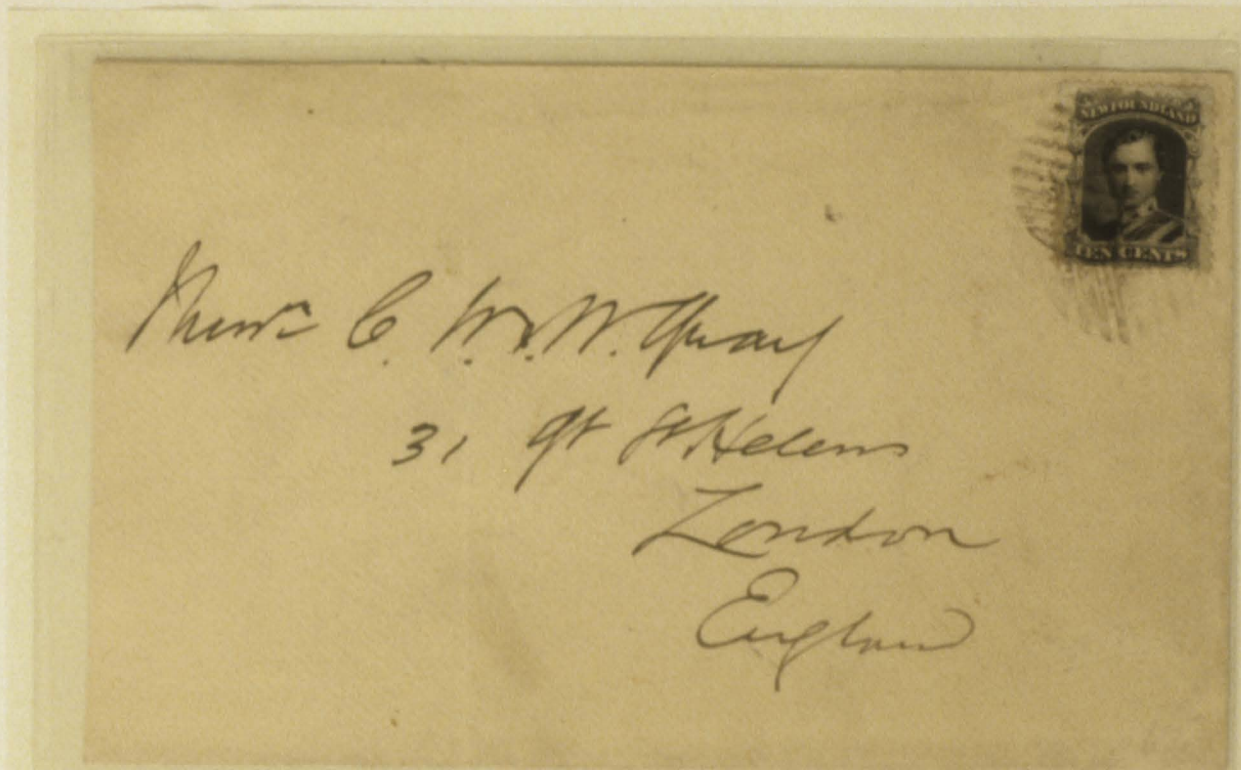 NEWFOUNDLAND
TEN CENTS
Messrs C. W. & W. Gray
31 Gt St Helens
London
England